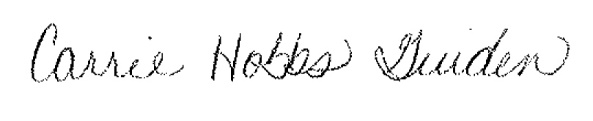 Carrie Hobbs Guiden